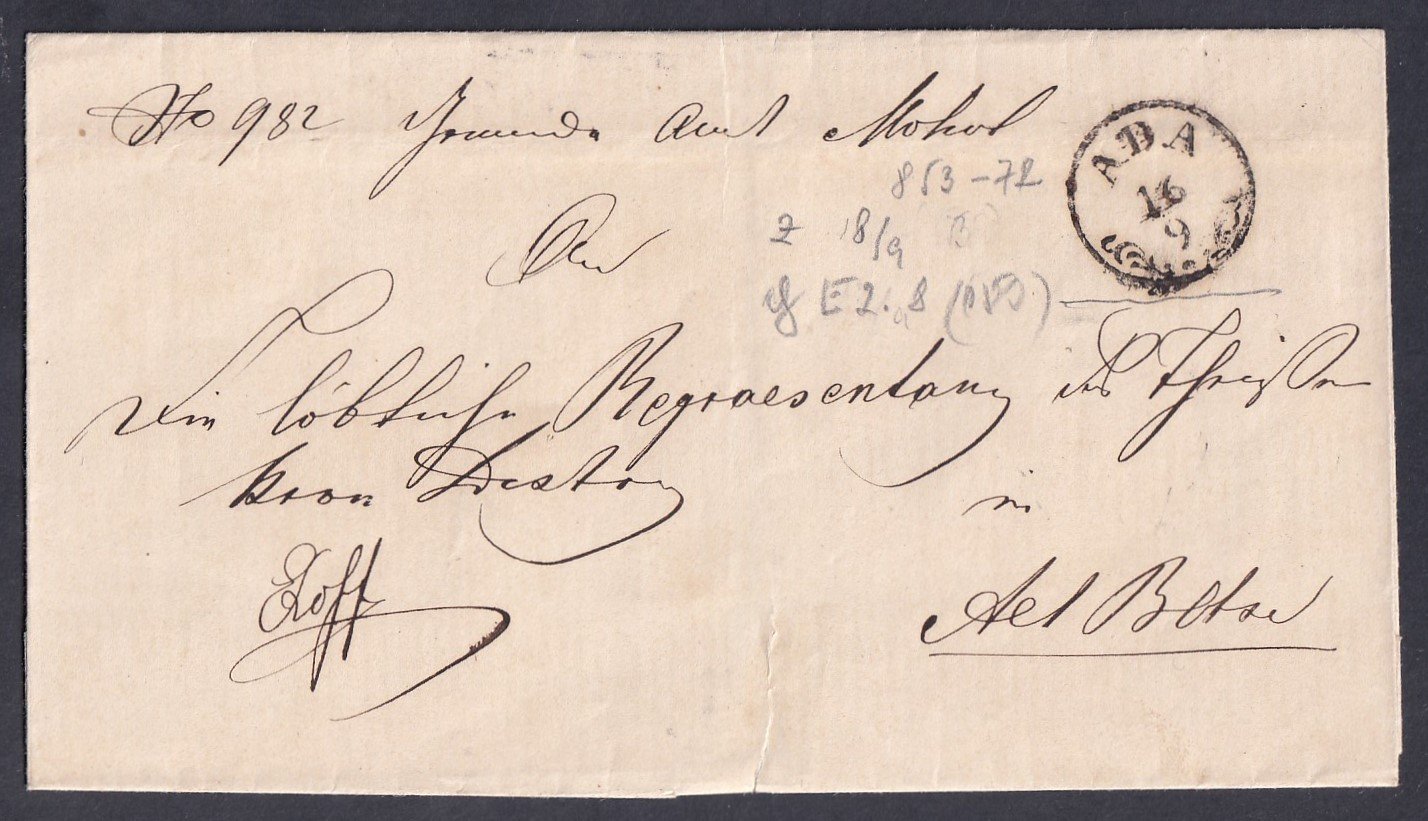 No 982 Gemeinde Amt Mohol
ADA
16
9
853-72
An
2 18/9 B
E 2. 8
Ein löbliche Repraesentanz des Theißer
Kron Distr
in
Exoff
Alt Betse